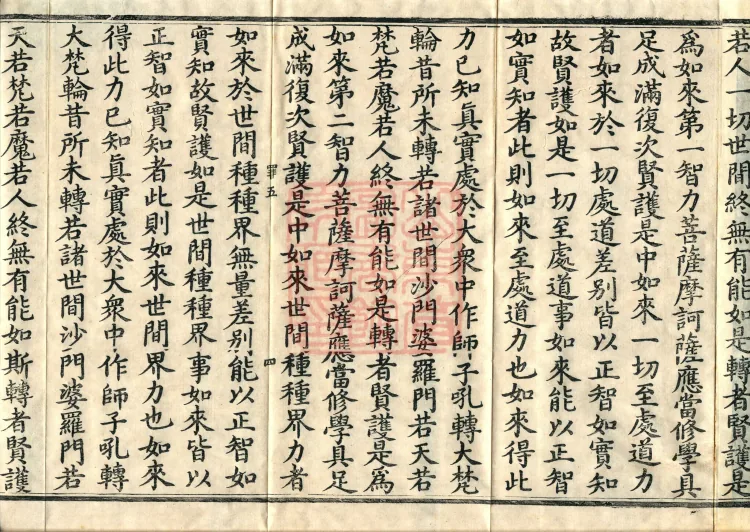 若人一切世間終無有能如是轉者賢護是
為如來第一智力菩薩摩訶薩應當修學具
足成滿復次賢護是中如來一切至處道力
者如來於一切處道差別皆以正智如實知
故賢護如是一切至處道事如來能以正智
如實知者此則如來至處道力也如來得此
力已知真實處於大衆中作師子吼轉大梵
輪昔所未轉若諸世間沙門婆羅門若天若
梵若魔若人終無有能如是轉者賢護是為
如來第二智力菩薩摩訶薩應當修學具足
成滿復次賢護是中如來世間種種界力者
罪五
四
如來於世間種種界無量差別能以正智如
實知故賢護如是世間種種界事如來皆以
正智如實知者此則如來世間界力也如來
得此力已知真實處於大衆中作師子吼轉
大梵輪昔所未轉若諸世間沙門婆羅門若
天若梵若魔若人終無有能如斯轉者賢護